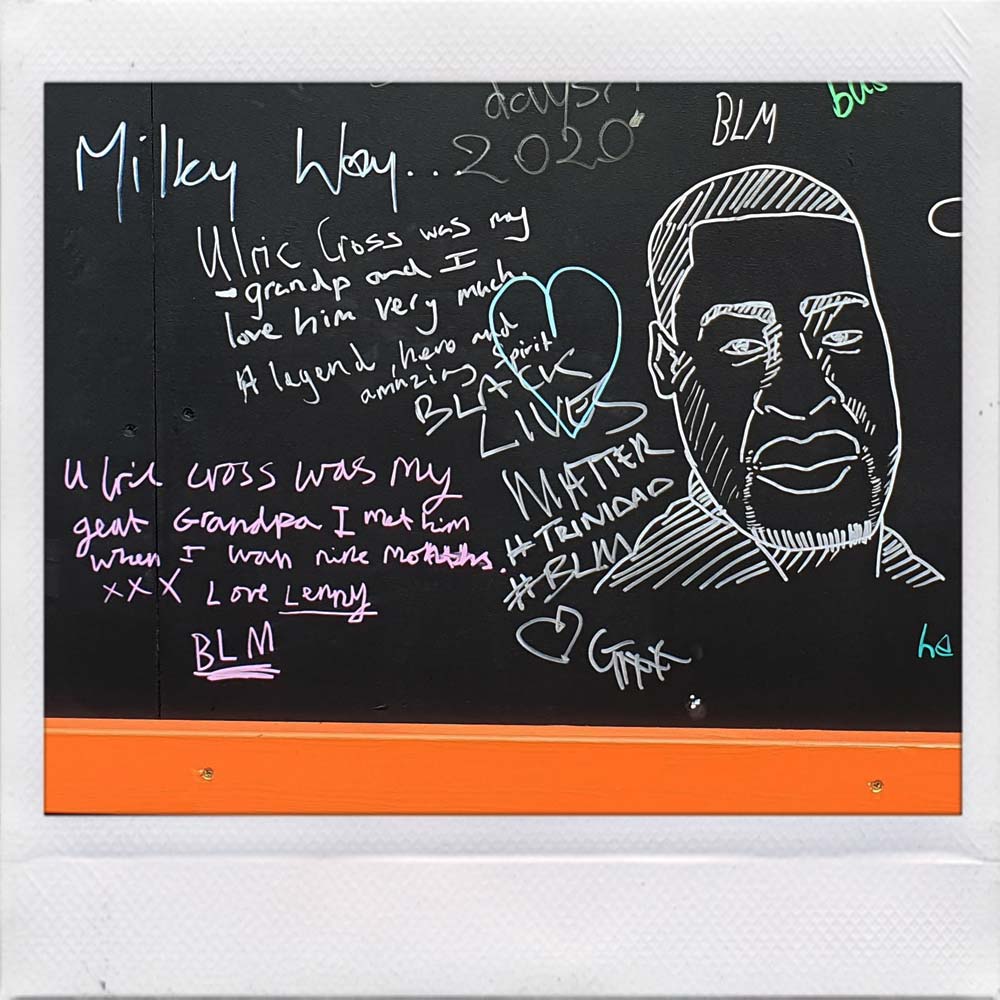 days
2020
BLM
Milky Way...
Ulric Cross was my
grandp and I
love him very much.
A legend, hero and
amazing spirit
BLACK
LIVES
MATTER
#TRINIDAD
#BLM
Ulric cross was my
geat Grandpa I met him
when I wan nine months.
xxx Love Lenny
BLM